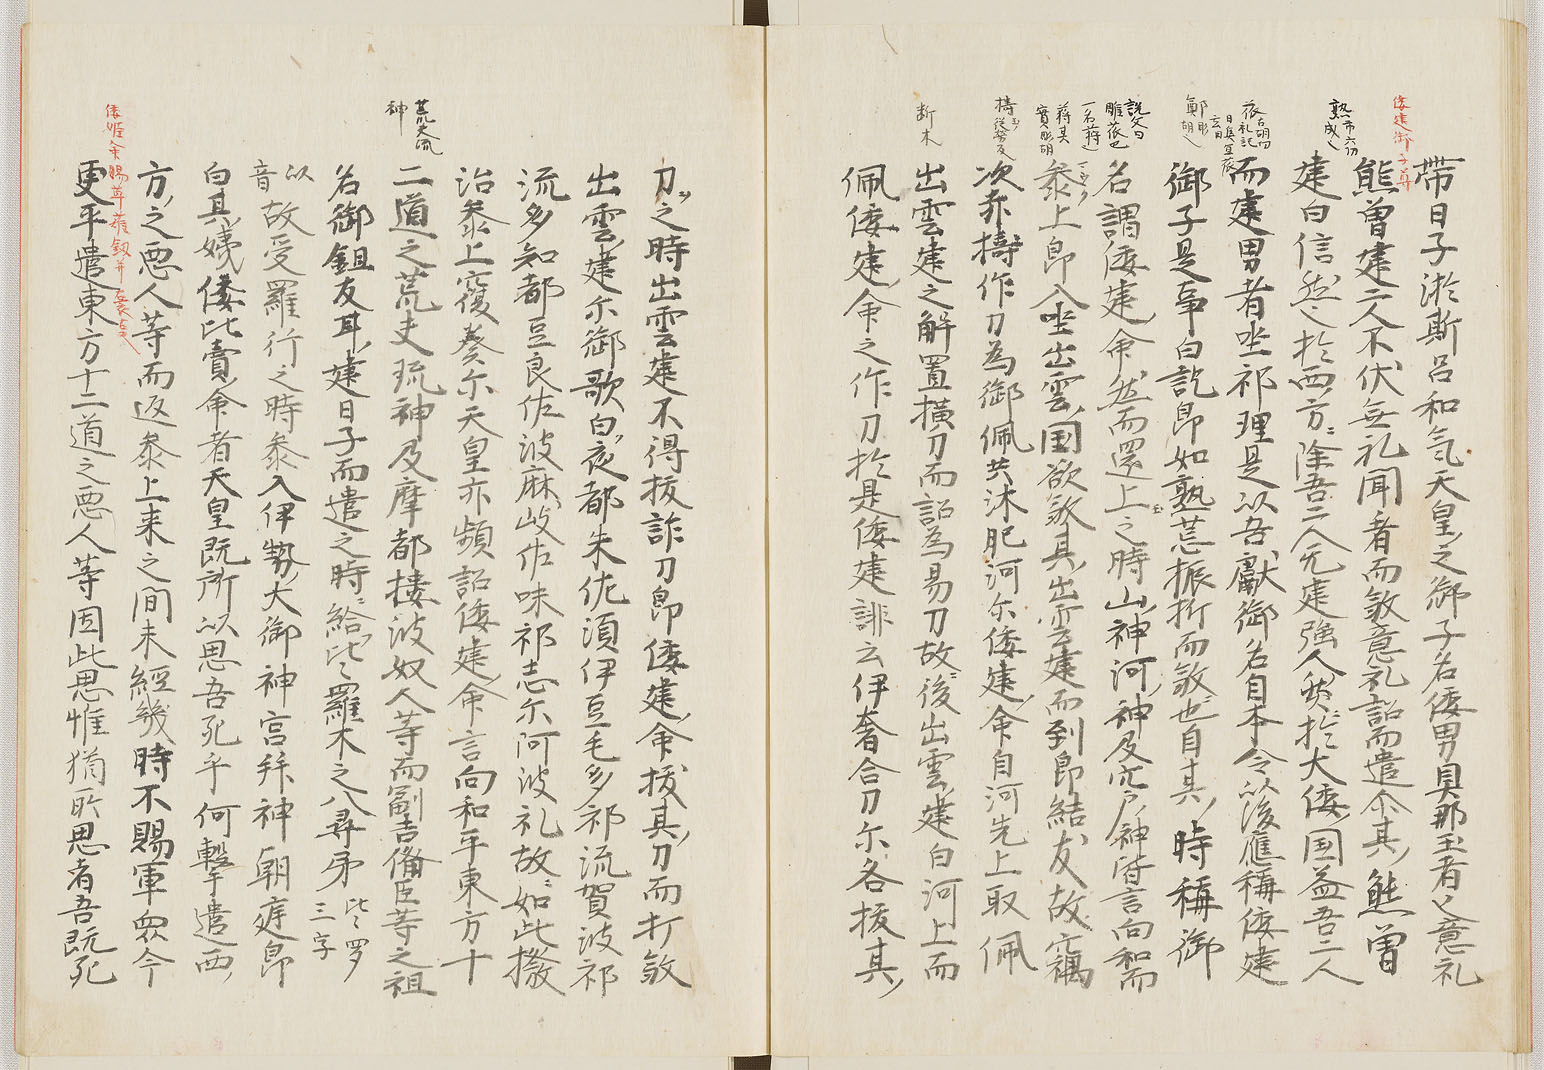 倭建御子尊
熟市六切成也
荒夫流神
断木
倭姫命賜草薙釼并嚢
帯日子淤斯呂和氣天皇之御子名倭男具那玉者也意礼
熊曽建二人不伏無礼聞者而敘意礼詔而遣尒其熊曽
建白信然也於西方除吾二人无建強人然於大倭國益吾二人
而建男者坐祁理是以吾獻御名自本今以後應稱倭建
御子是事白訖即如熟苽振折而敘也自其時稱御
名謂倭建命然而還上之時山神河神及穴戸神皆言向和而
参上即入坐出雲國欲敘其出雲建而到即結友故竊
次亦檮作刀為御佩共沐肥河尒倭建命自河先上取佩
出雲建之解置横刀而詔為易刀故後出雲建白河上而
佩倭建命之作刀於是倭建誹云伊奢合刀尒各抜其
刀之時出雲建不得抜詐刀即倭建命抜其刀而打敘
出雲建尒御歌白夜都米佐須伊豆毛多祁流賀波祁
流多知都豆良佐波麻岐佐味祁志尒阿波礼故如此撥
治参上覆奏尒天皇亦頻詔倭建命言向和平東方十
二道之荒夫琉神及摩都樓波奴人等而副吉備臣等之祖
名御鉏友耳建日子而遣之時給比々羅木之八尋矛 比々罗三字
以音故受羅行之時参入伊勢大御神宮拜神朝庭即
白其姨倭比賣命者天皇既所以思吾死乎何撃遣西
方之悪人等而返参上来之間未經幾時不賜軍衆今
更平遣東方十二道之悪人等因此思惟猶所思者吾既死